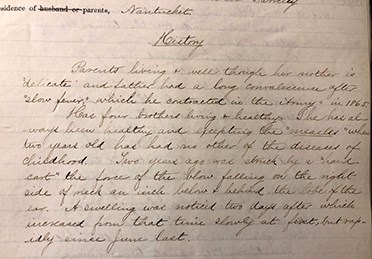 esidence of husband or parents, Nantucket.
History
Parents living & well though her mother is
"delicate" and father had a long convalescence after
"slow fever," which he contracted in the "army" in 1865
Has four brothers living & healthy. She has al-
ways been healthy and excepting the "measles" when
two years old has had no other of the diseases of
childhood. Two years ago was struck by a "hand
cart" the force of the blow falling on the right
side of neck an inch below & behind the lobe of the
ear. A swelling was noticed two days after which
increased from that time slowly at first, but rap-
idly since June last.